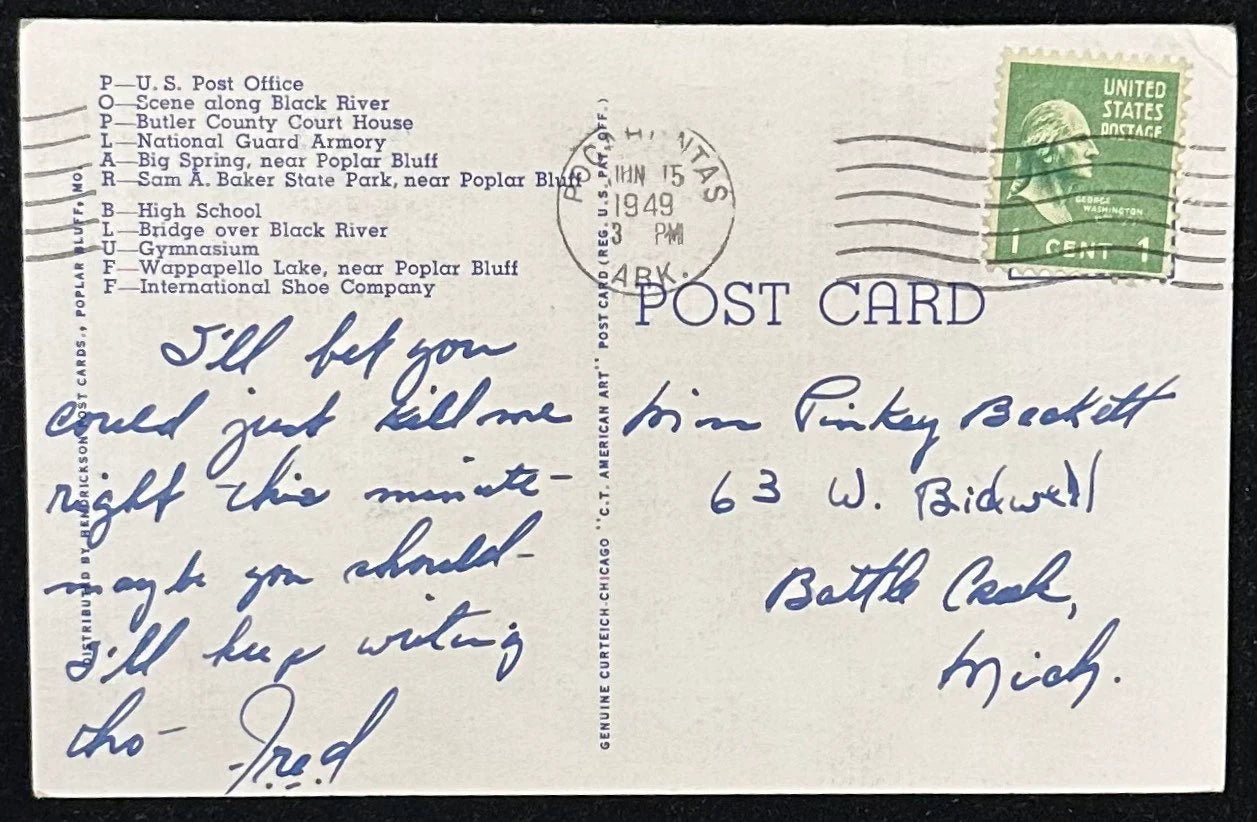 P—U.S. Post Office
O—Scene along Black River
P—Butler County Court House
L—National Guard Armory
A—Big Spring, near Poplar Bluff
R—Sam A. Baker State Park, near Poplar Bluff
B—High School
L—Bridge over Black River
U—Gymnasium
F—Wappapello Lake, near Poplar Bluff
F—International Shoe Company
DISTRIBUTED BY HENDRICKSON POST CARDS., POPLAR BLUFF, MO.
I'll bet you
could just kill me
right this minute—
maybe you should—
I'll keep writing
tho—
Fred
GENUINE CURTEICH-CHICAGO "C.T. AMERICAN ART" POST CARD (REG. U.S. PAT. OFF.)
POCAHONTAS
JUN 15
1949
3 PM
ARK.
UNITED
STATES
POSTAGE
GEORGE
WASHINGTON
1 CENT 1
POST CARD
Miss Pinkey Beckett
63 W. Bidwell
Battle Creek,
Mich.